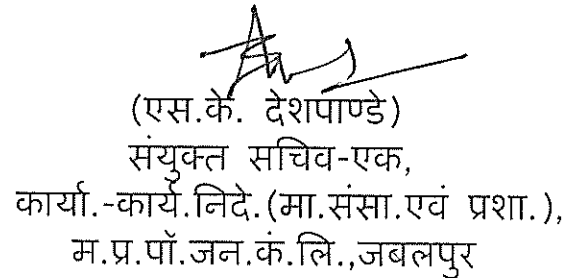 (एस.के. देशपाण्डे)
संयुक्त सचिव-एक,
कार्या.-कार्य.निदे.(मा.संसा.एवं प्रशा.),
म.प्र.पॉ.जन.कं.लि.,जबलपुर